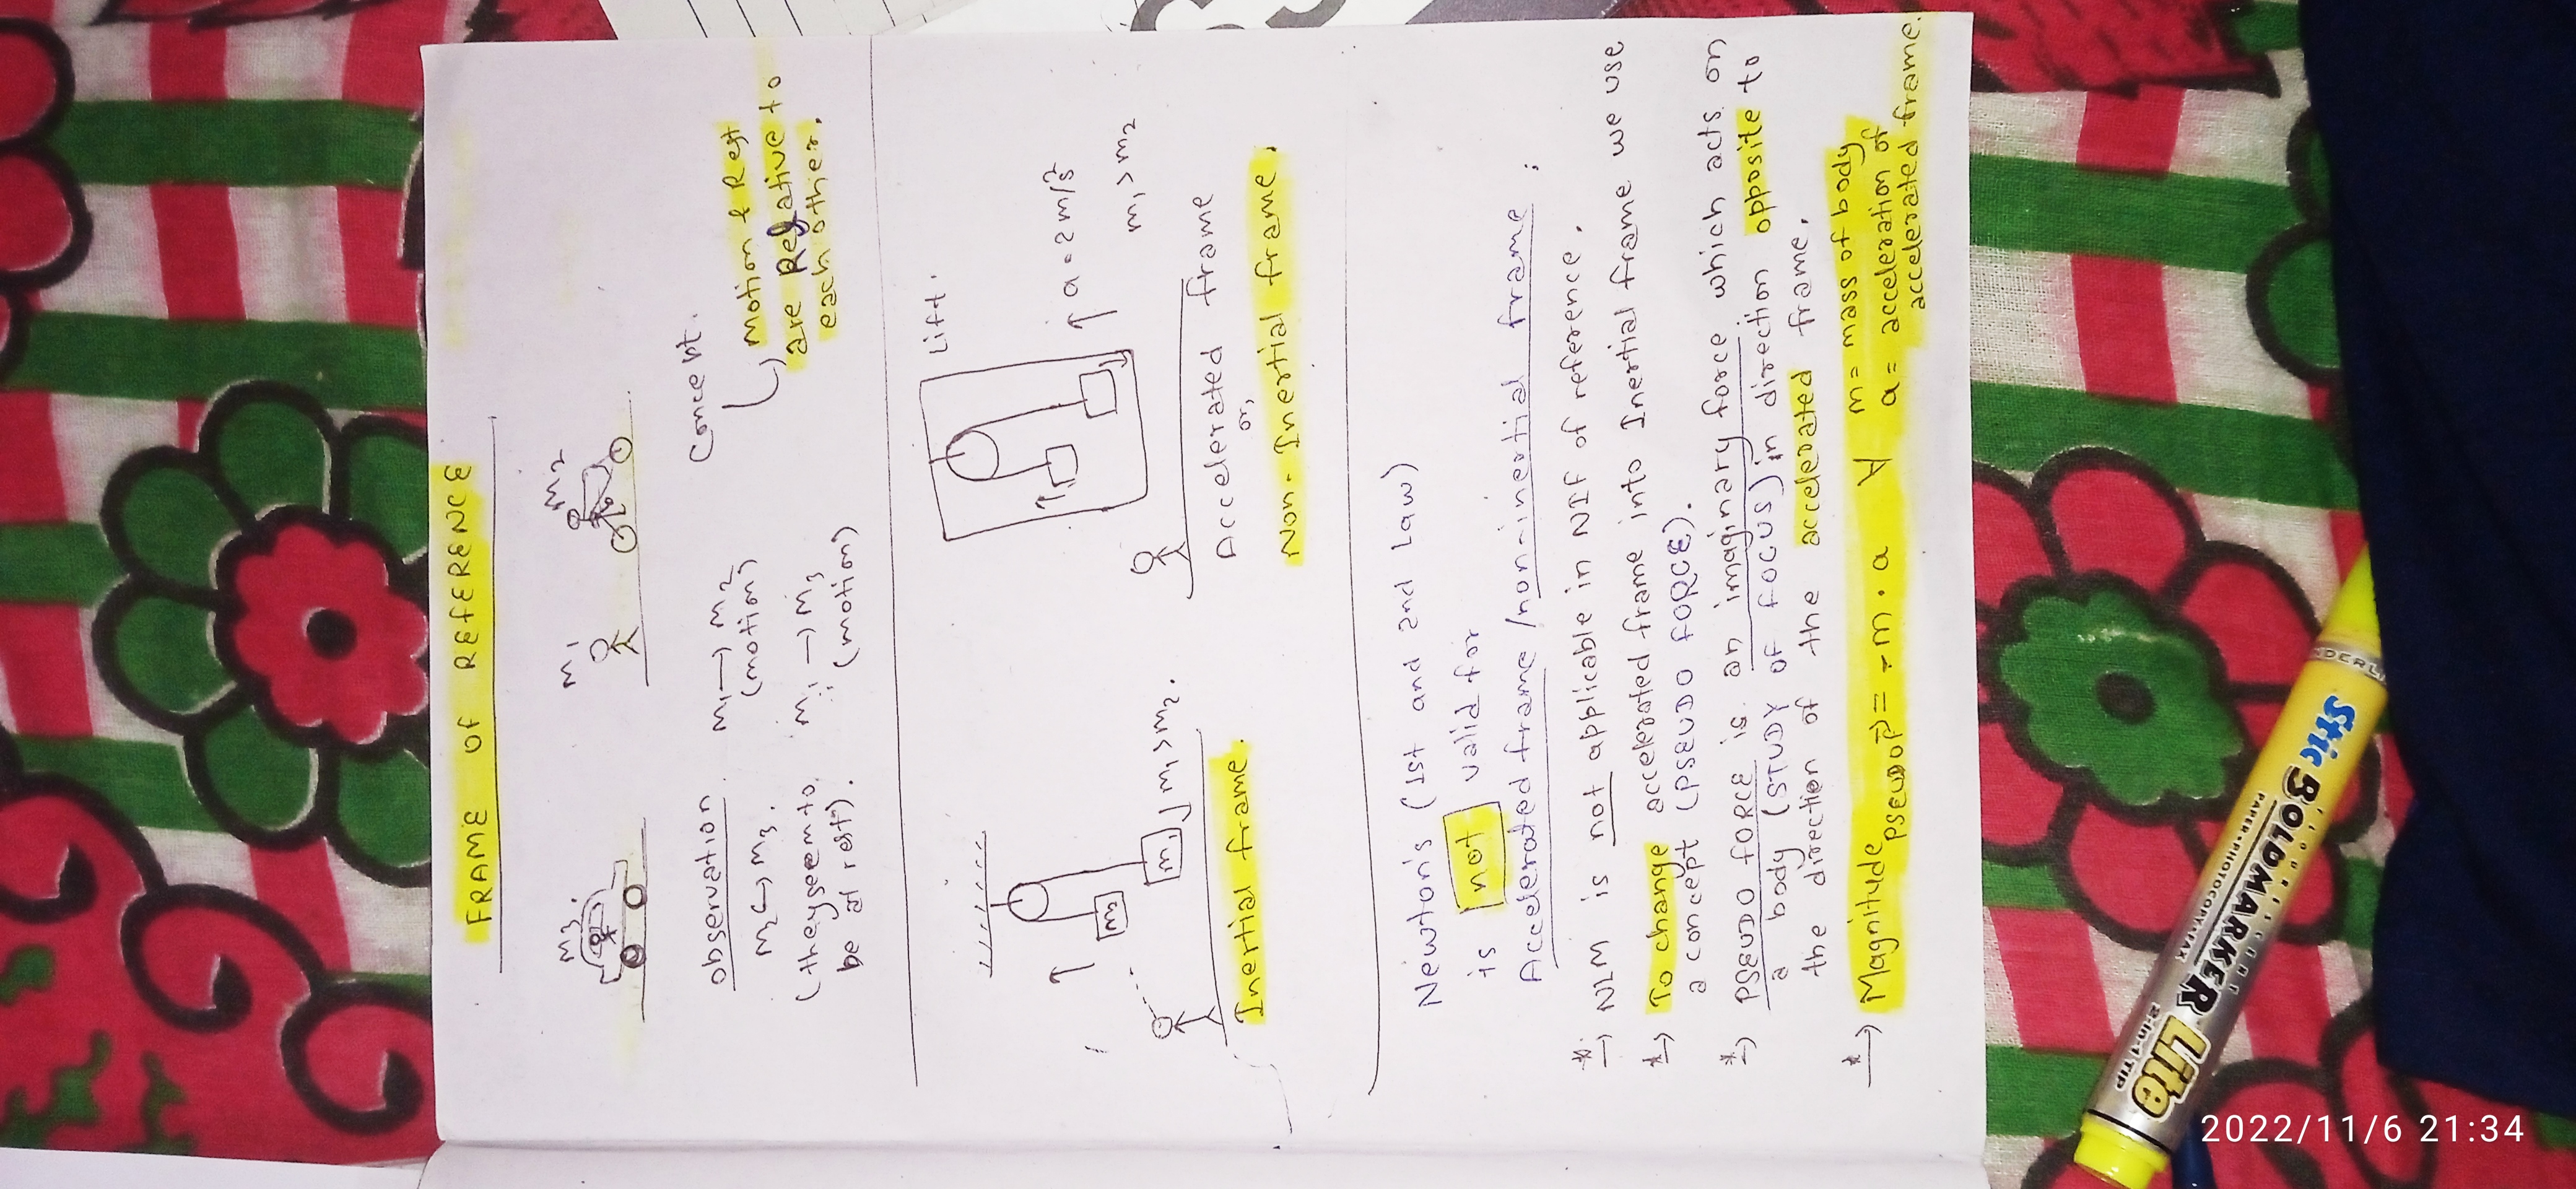 FRAME OF REFERENCE
m3.
m1
m2
observation.
m2 ↔ m3.
(they seem to
be at rest).
m1 → m2
(motion)
m1 → m3
(motion)
Concept.
motion & Rest
are Relative to
each other.
m2
m1
m1 > m2.
Inertial frame.
Lift.
↑ a = 2 m/s²
m1 > m2
Accelerated frame
or,
Non-Inertial frame.
Newton's (1st and 2nd Law)
is not valid for
Accelerated frame / non-inertial frame ;
*→ NLM is not applicable in NIF of reference.
*→ To change accelerated frame into Inertial frame we use
a concept (PSEUDO FORCE).
*→ PSEUDO FORCE is an imaginary force which acts on
a body (STUDY OF FOCUS) in direction opposite to
the direction of the accelerated frame.
*→ Magnitude PSEUDO F⃗ = - m . a ∀ m = mass of body
a = acceleration of
accelerated frame.
Stic BOLDMARKER Lite
COLOUR SCENT
PAPER•PHOTOCOPY•FAX
2-in-1 TIP
2022/11/6 21:34